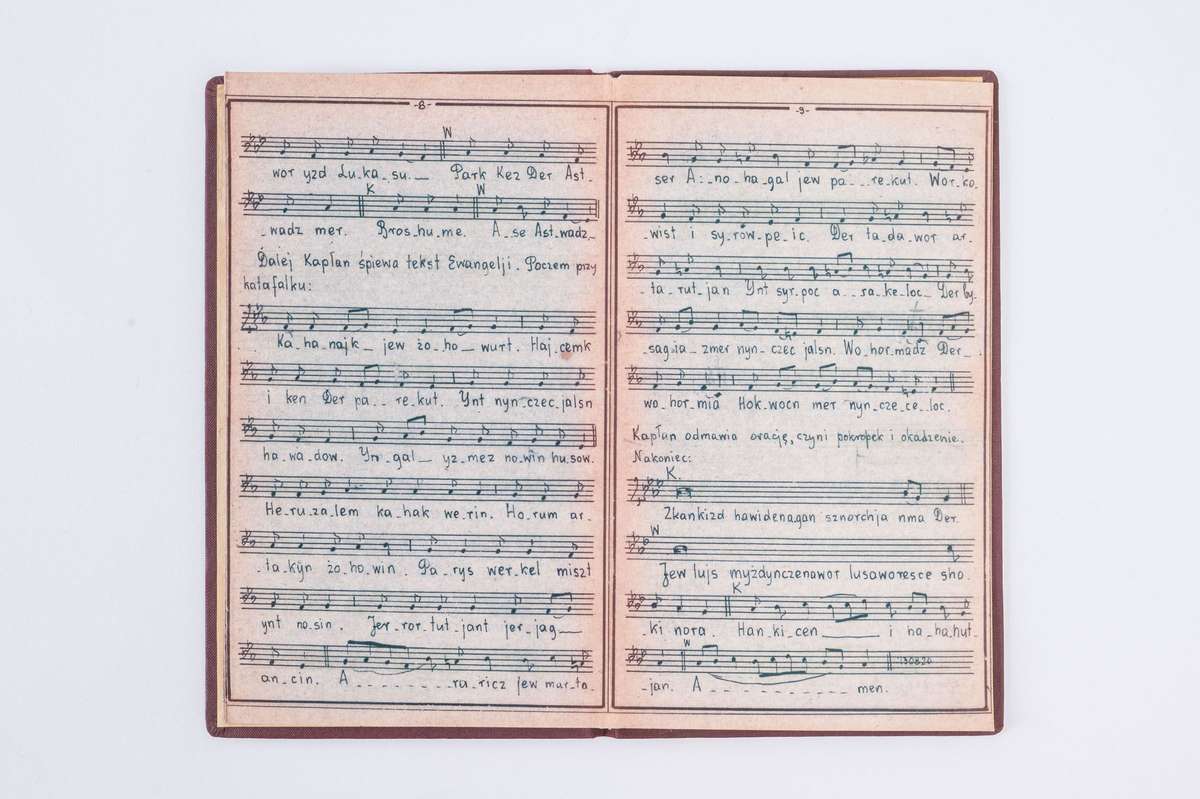 -8-
W
wor yzd Łu-ka-su.— Park Kez Der Ast-
K W
-wadz mer. Pros-hu-me. A-se Ast-wadz.
Dalej Kapłan śpiewa tekst Ewangelji. Poczem przy
katafalku:
Ka-ha-najk— jew żo-ho— wurt. Haj-cemk
i ken Der pa--re-kut. Ynt nyn-czec-jalsn
ha-wa-dow. Yn-gal— yz-mez no-win hu-sow.
He-ru-za-lem ka-hak we-rin. Ho-rum ar-
-ta-kýn żo-ho-win. Pa-rys wer-kel miszt
ynt no-sin. Jer-ror-tut-jant jer-jag—
an-cin. A-------ra-ricz jew mar-ta-
-9-
ser A:-no-ha-gal jew pa--re-kut. Wor-ko-
-wist i sy-rów-pe-ic. Der ta-da-wor ar-
-ta-rut-jan Ynt syr-poc a--ra-ke-loc— Der by-
-sag-ia-zmer nyn-czec jalsn. Wo-hor-madz Der-
wo-hor-mia Hok-wocn mer nyn-cze-ce-loc.
Kapłan odmawia orację, czyni pokropek i okadzenie.
Nakoniec:
K.
Zkankizd hawidenagan sznorchja nma Der.
W
Jew lujs myżdynczenawor lusaworesce sho-
K
-ki nora. Han-ki-cen——— i ha-ha-hut-
W
130820
-jan. A---------men.